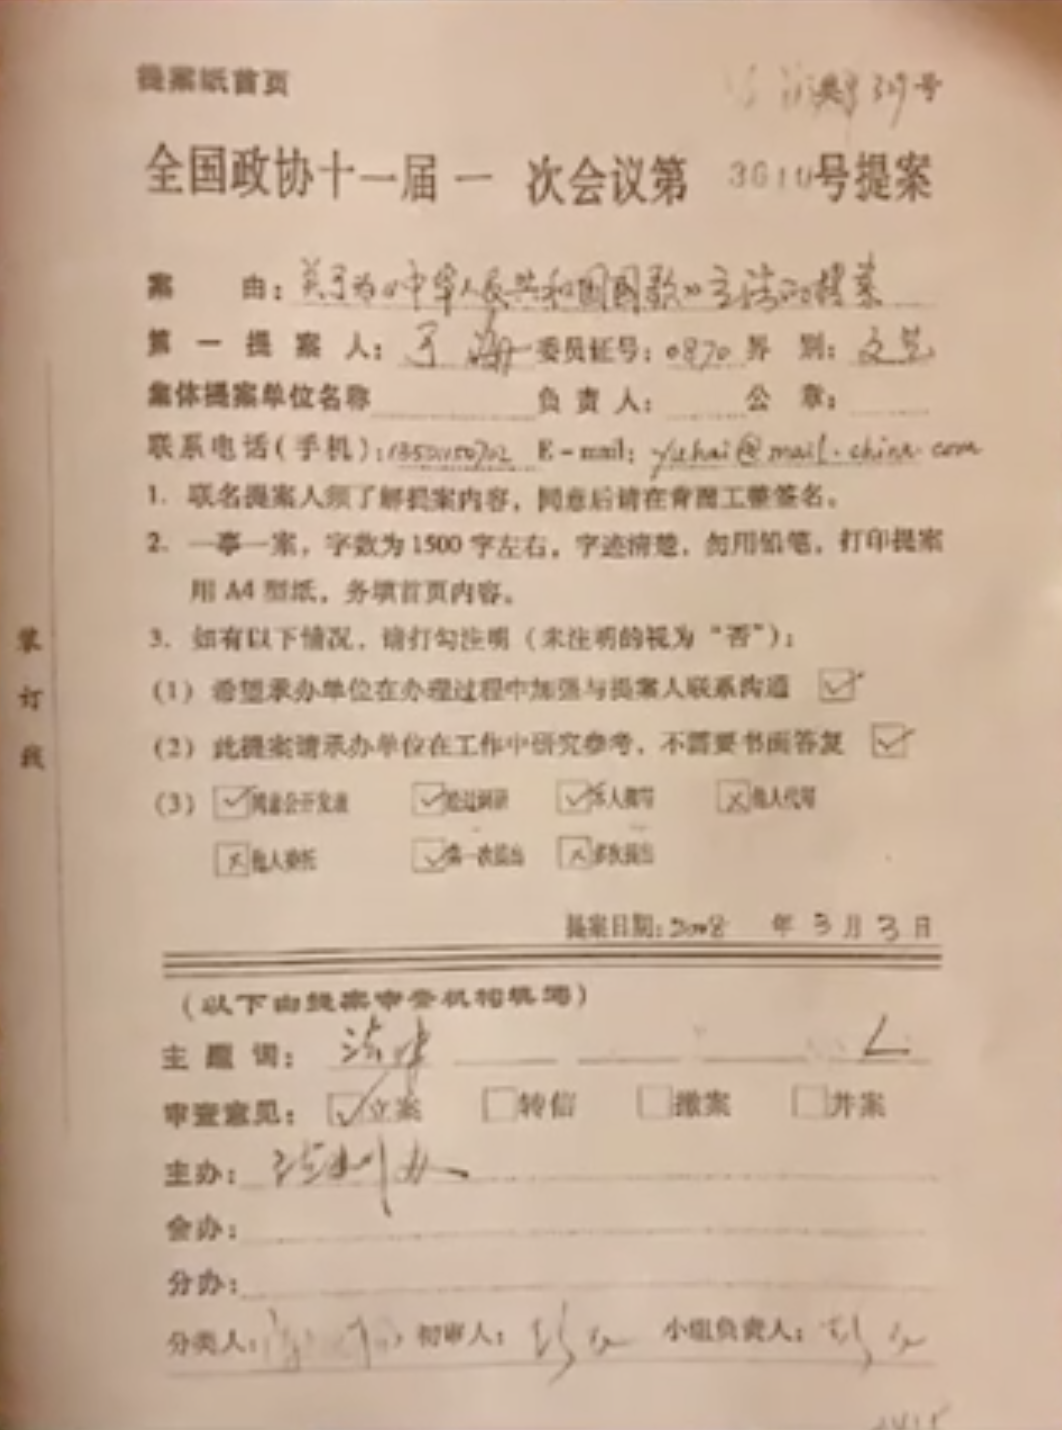 提案纸首页
号
全国政协十一届 一 次会议第 3610号提案
案 由：关于为《中华人民共和国国歌》立法的提案
第 一 提 案 人：于 海 委员证号：0870 界 别：文艺
集体提案单位名称 负 责 人： 公 章：
联系电话(手机)： E-mail：yuhai@mail.china.com
1. 联名提案人须了解提案内容，同意后请在背面工整签名。
2. 一事一案，字数为1500字左右，字迹清楚，勿用铅笔，打印提案
用A4型纸，务填首页内容。
3. 如有以下情况，请打勾注明（未注明的视为“否”）：
(1) 希望承办单位在办理过程中加强与提案人联系沟通
(2) 此提案请承办单位在工作中研究参考，不需要书面答复
(3) 同意公开发表 经过调研 本人撰写 他人代写
他人委托 第一次提出 多次提出
提案日期：2008 年 3 月 3 日
装订线
（以下由提案审查机构填写）
主 题 词：法律
审查意见： 立案 转信 撤案 并案
主办：法制办
会办：
分办：
分类人： 初审人： 小组负责人：